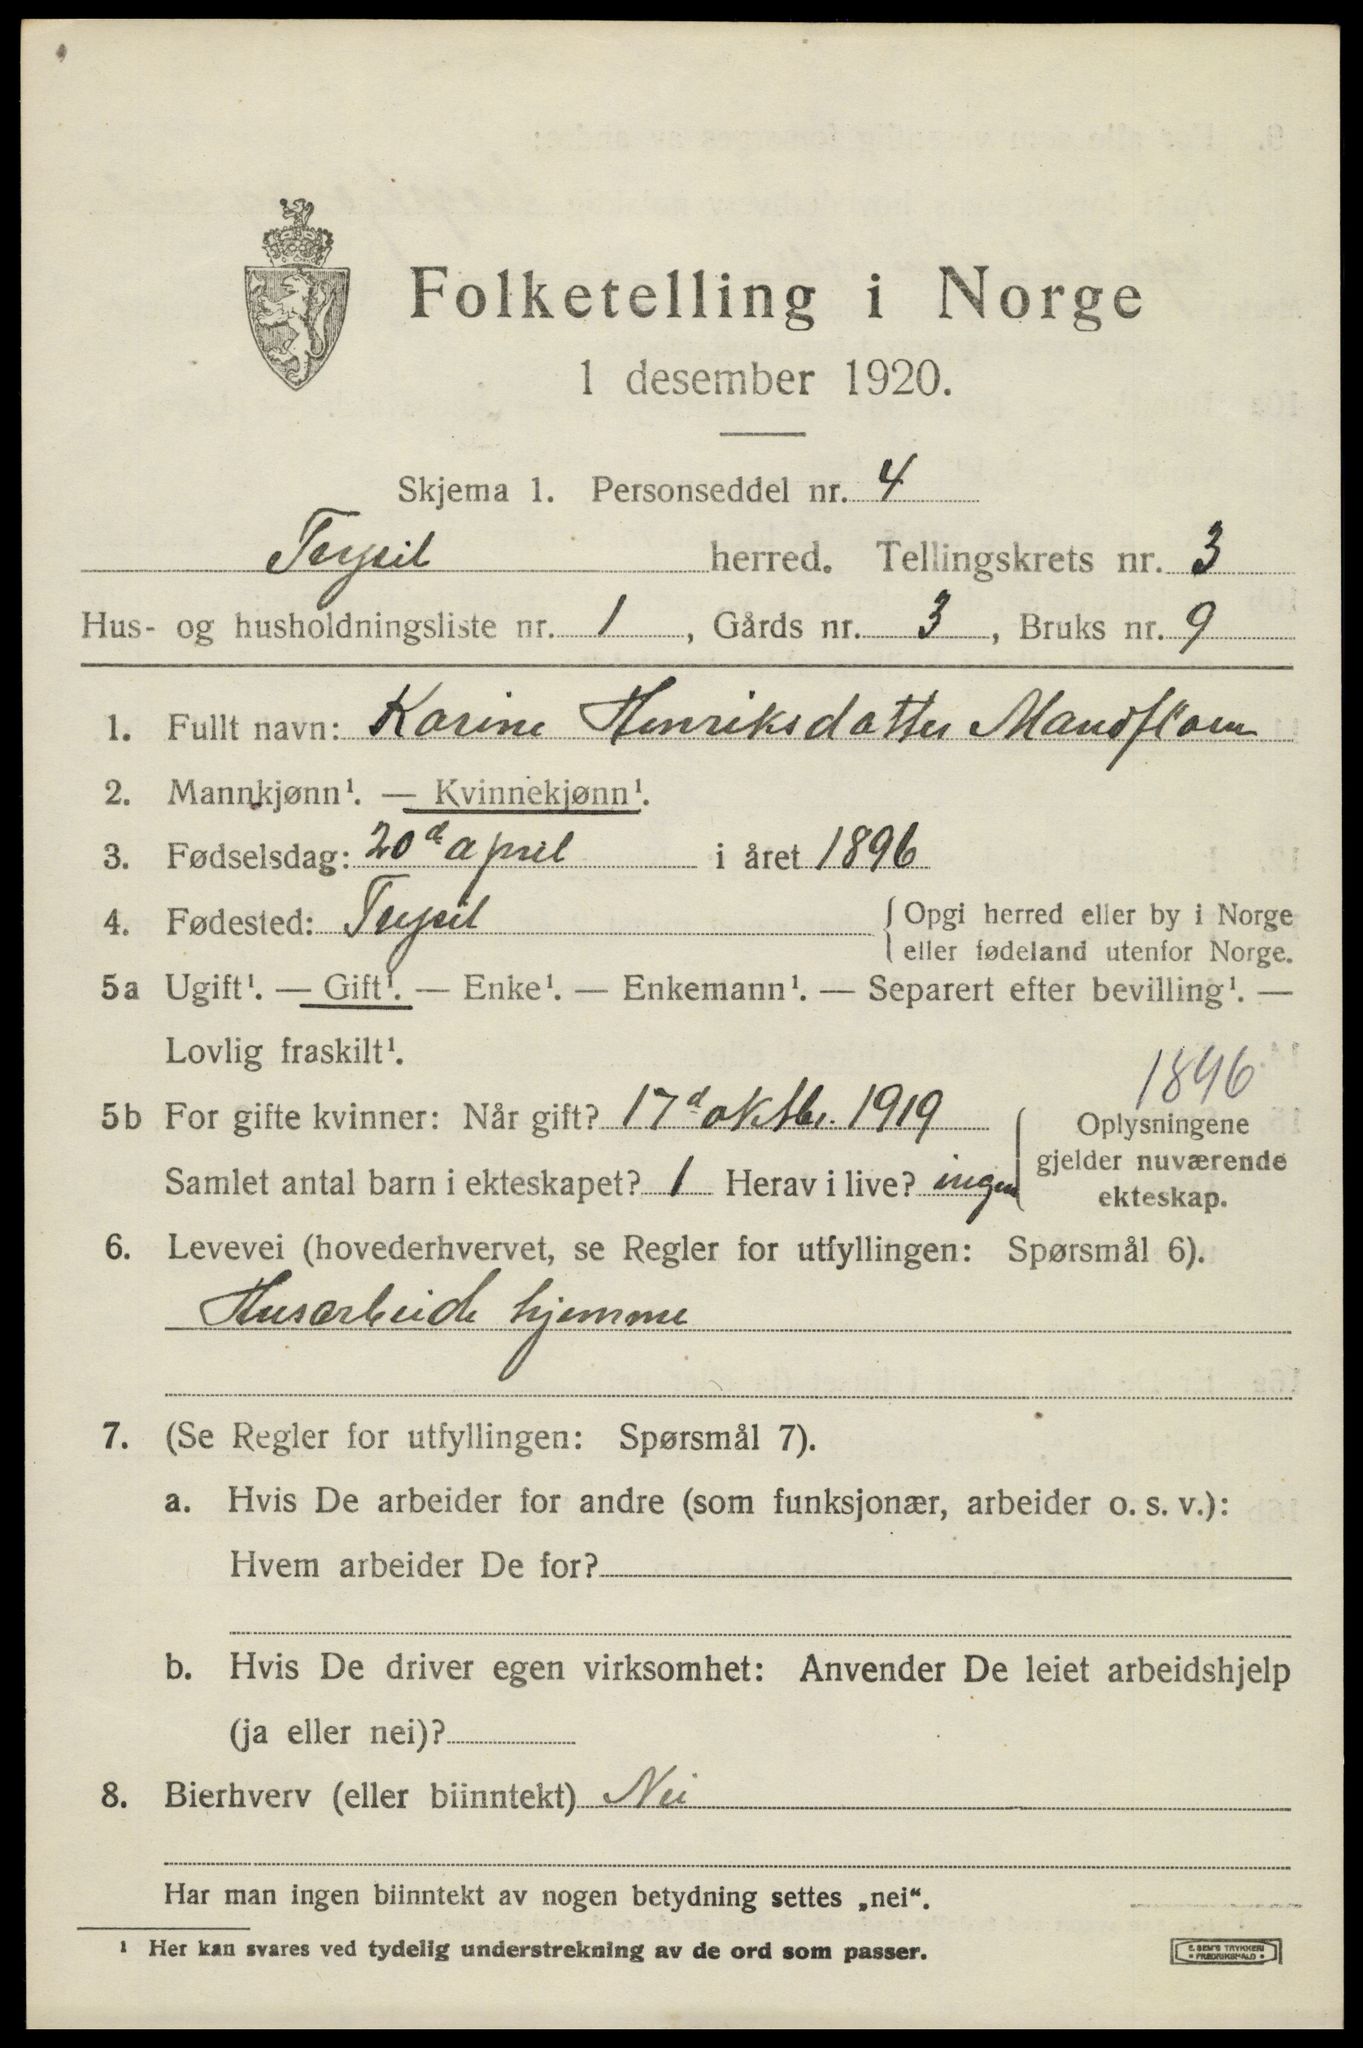 Folketelling i Norge
1 desember 1920.
Skjema 1. Personseddel nr. 4
Trysil herred. Tellingskrets nr. 3
Hus- og husholdningsliste nr. 1, Gårds nr. 3, Bruks nr. 9
1. Fullt navn: Karine Henriksdatter
2. Mannkjønn¹. — Kvinnekjønn¹.
3. Fødselsdag: 20d april i året 1896
4. Fødested: Trysil { Opgi herred eller by i Norge
eller fødeland utenfor Norge.
5a Ugift¹. — Gift¹. — Enke¹. — Enkemann¹. — Separert efter bevilling¹. —
Lovlig fraskilt¹.
1896
5b For gifte kvinner: Når gift? 17d oktbr. 1919
Samlet antal barn i ekteskapet? 1 Herav i live? ingen
Oplysningene
gjelder nuværende
ekteskap.
6. Levevei (hovederhvervet, se Regler for utfyllingen: Spørsmål 6).
Husarbeide hjemme
7. (Se Regler for utfyllingen: Spørsmål 7).
a. Hvis De arbeider for andre (som funksjonær, arbeider o. s. v.):
Hvem arbeider De for?
b. Hvis De driver egen virksomhet: Anvender De leiet arbeidshjelp
(ja eller nei)?
8. Bierhverv (eller biinntekt) Nei
Har man ingen biinntekt av nogen betydning settes „nei“.
¹ Her kan svares ved tydelig understrekning av de ord som passer.
E. SEM'S TRYKKERI
FREDRIKSHALD